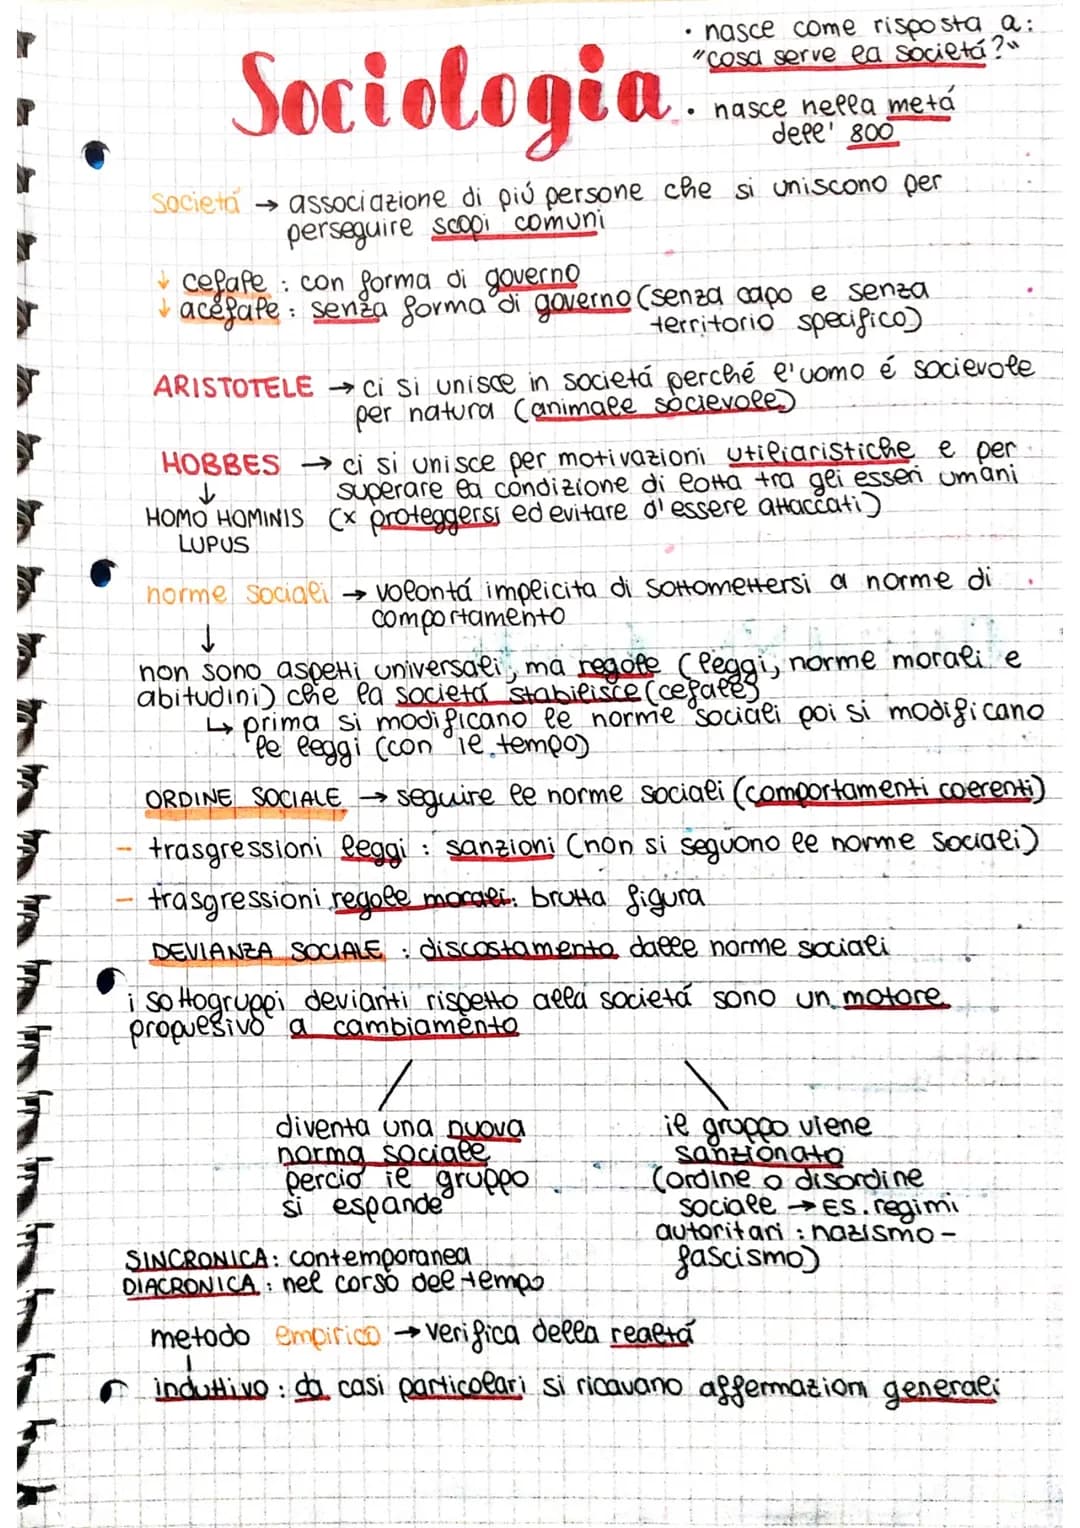 Sociologia
• nasce come risposta a:
"cosa serve la societá?"
• nasce nella metá
dell' 800
Societá → associazione di piú persone che si uniscono per
perseguire scopi comuni
↓ cefale : con forma di governo
↓ acefale : senza forma di governo (senza capo e senza
territorio specifico)
ARISTOTELE → ci si unisce in societá perché l'uomo é socievole
per natura (animale socievole)
HOBBES → ci si unisce per motivazioni utiliaristiche e per
↓ superare la condizione di lotta tra gli esseri umani
HOMO HOMINIS (x proteggersi ed evitare d'essere attaccati)
LUPUS
norme sociali → volontá implicita di sottomettersi a norme di
comportamento
↓
non sono aspetti universali, ma regole (leggi, norme morali e
abitudini) che la societá stabilisce (cefale)
↳ prima si modificano le norme sociali poi si modificano
le leggi (con il tempo)
ORDINE SOCIALE → seguire le norme sociali (comportamenti coerenti)
- trasgressioni leggi : sanzioni (non si seguono le norme sociali)
- trasgressioni regole morali: brutta figura
DEVIANZA SOCIALE : discostamento dalle norme sociali
i sottogruppi devianti rispetto alla societá sono un motore
propulsivo a cambiamento
diventa una nuova
norma sociale
perció il gruppo
si espande
il gruppo viene
sanzionato
(ordine o disordine
sociale → ES. regimi
autoritari : nazismo -
fascismo)
SINCRONICA: contemporanea
DIACRONICA : nel corso del tempo
metodo empirico → verifica della realtá
induttivo : da casi particolari si ricavano affermazioni generali